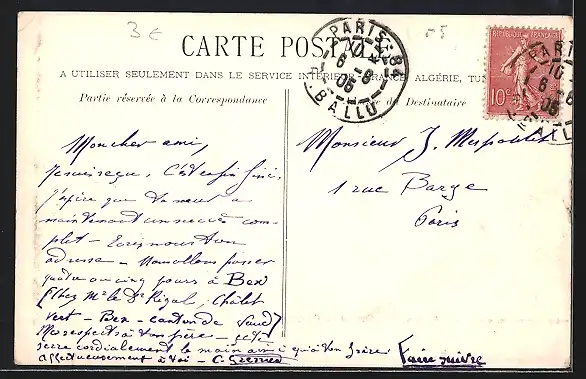 3 €
CARTE POSTALE
A UTILISER SEULEMENT DANS LE SERVICE INTÉRIEUR, FRANCE, ALGÉRIE, TUN
Partie réservée à la Correspondance
du Destinataire
PARIS 88
10
6 - 8
05
R. BALLU
RÉPUBLIQUE FRANÇAISE
10 c
PARIS
10
6 - 8
05
BALLU
Mon cher ami,
C'est enfin fini.
J'espère que tu
maintenant un succès com-
plet - Ecris-nous ton
adresse - Nous allons passer
quatre ou cinq jours à Bex
Chez Mr le Dr Rigal, Châlet
vert - Bex - canton de Vaud
Mes respects à ton père - je te
serre cordialement la main ainsi qu'à ton frère
affectueusement à toi - C.
Monsieur J.
1 rue Barye
Paris
Faire suivre